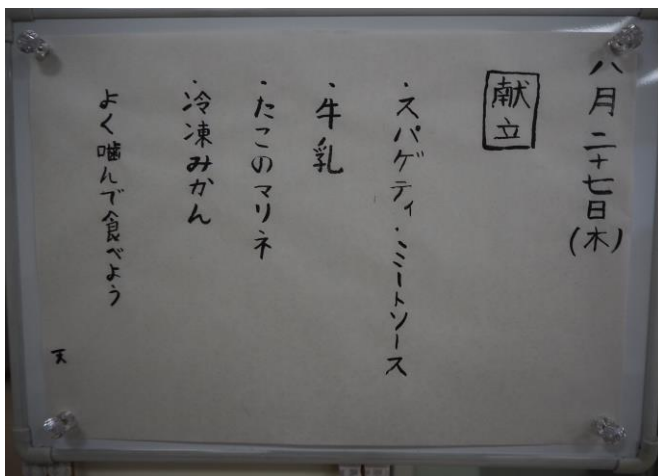 八月二十七日(木)
献立
・スパゲティ・ミートソース
・牛乳
・たこのマリネ
・冷凍みかん
よく噛んで食べよう